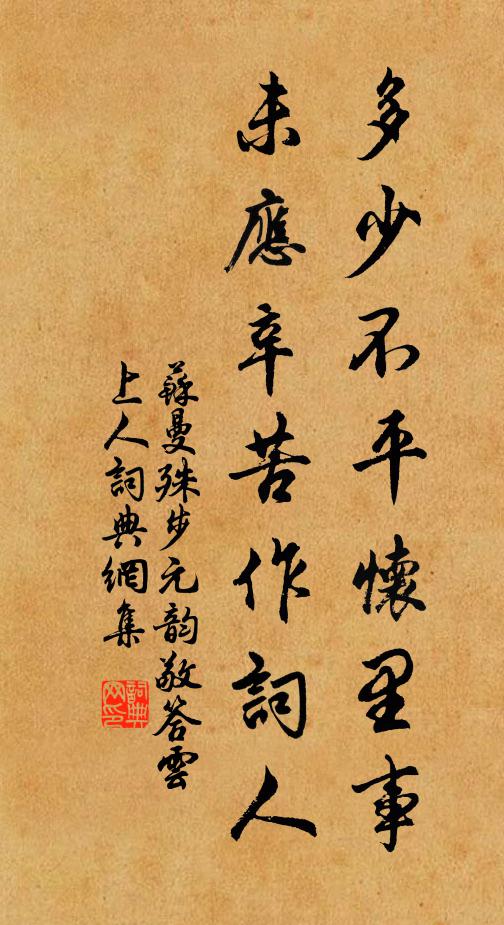 多少不平懷里事
未應辛苦作詞人
蘇曼殊步元韵敬答雲
上人詞典網集
詞典
网印